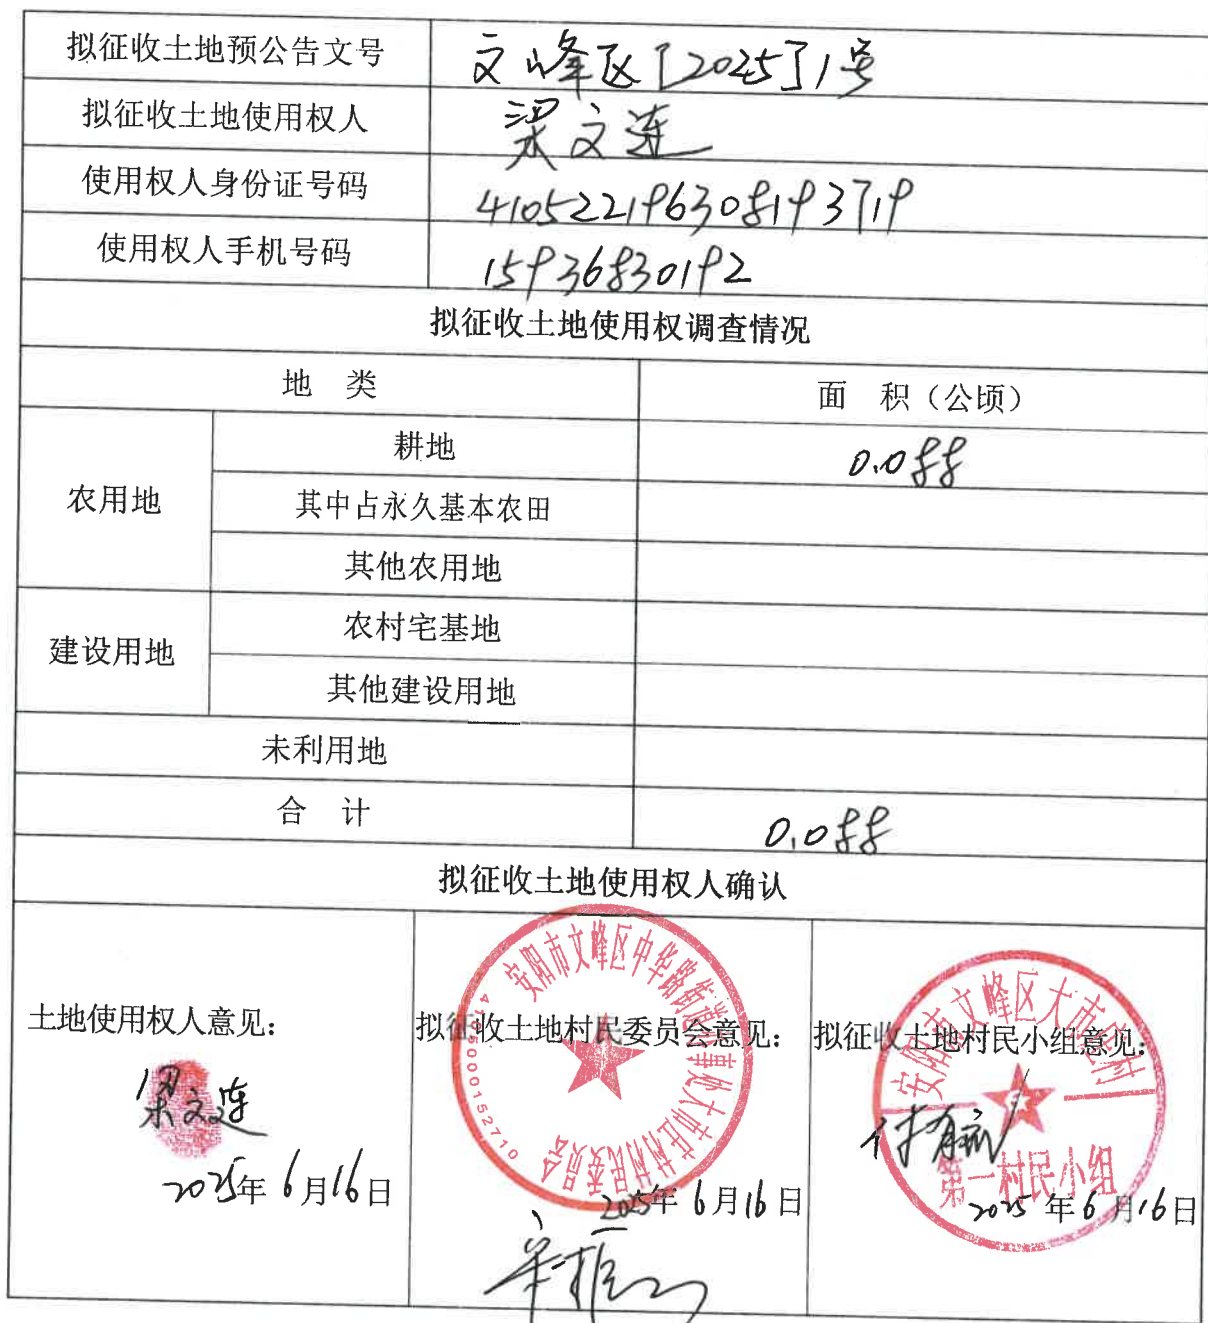 拟征收土地预公告文号 文峰区[2025]1号
拟征收土地使用权人 梁文连
使用权人身份证号码 410522196308193719
使用权人手机号码 15936830192
拟征收土地使用权调查情况
地 类 面 积（公顷）
农用地 耕地 0.088
其中占永久基本农田
其他农用地
建设用地 农村宅基地
其他建设用地
未利用地
合 计 0.088
拟征收土地使用权人确认
土地使用权人意见：
梁文连
2025年6月16日
拟征收土地村民委员会意见：
安阳市文峰区中华路街道办事处大市庄村村民委员会
4105000152710
2025年6月16日
拟征收土地村民小组意见：
安阳市文峰区大市庄村
第一村民小组
2025年6月16日